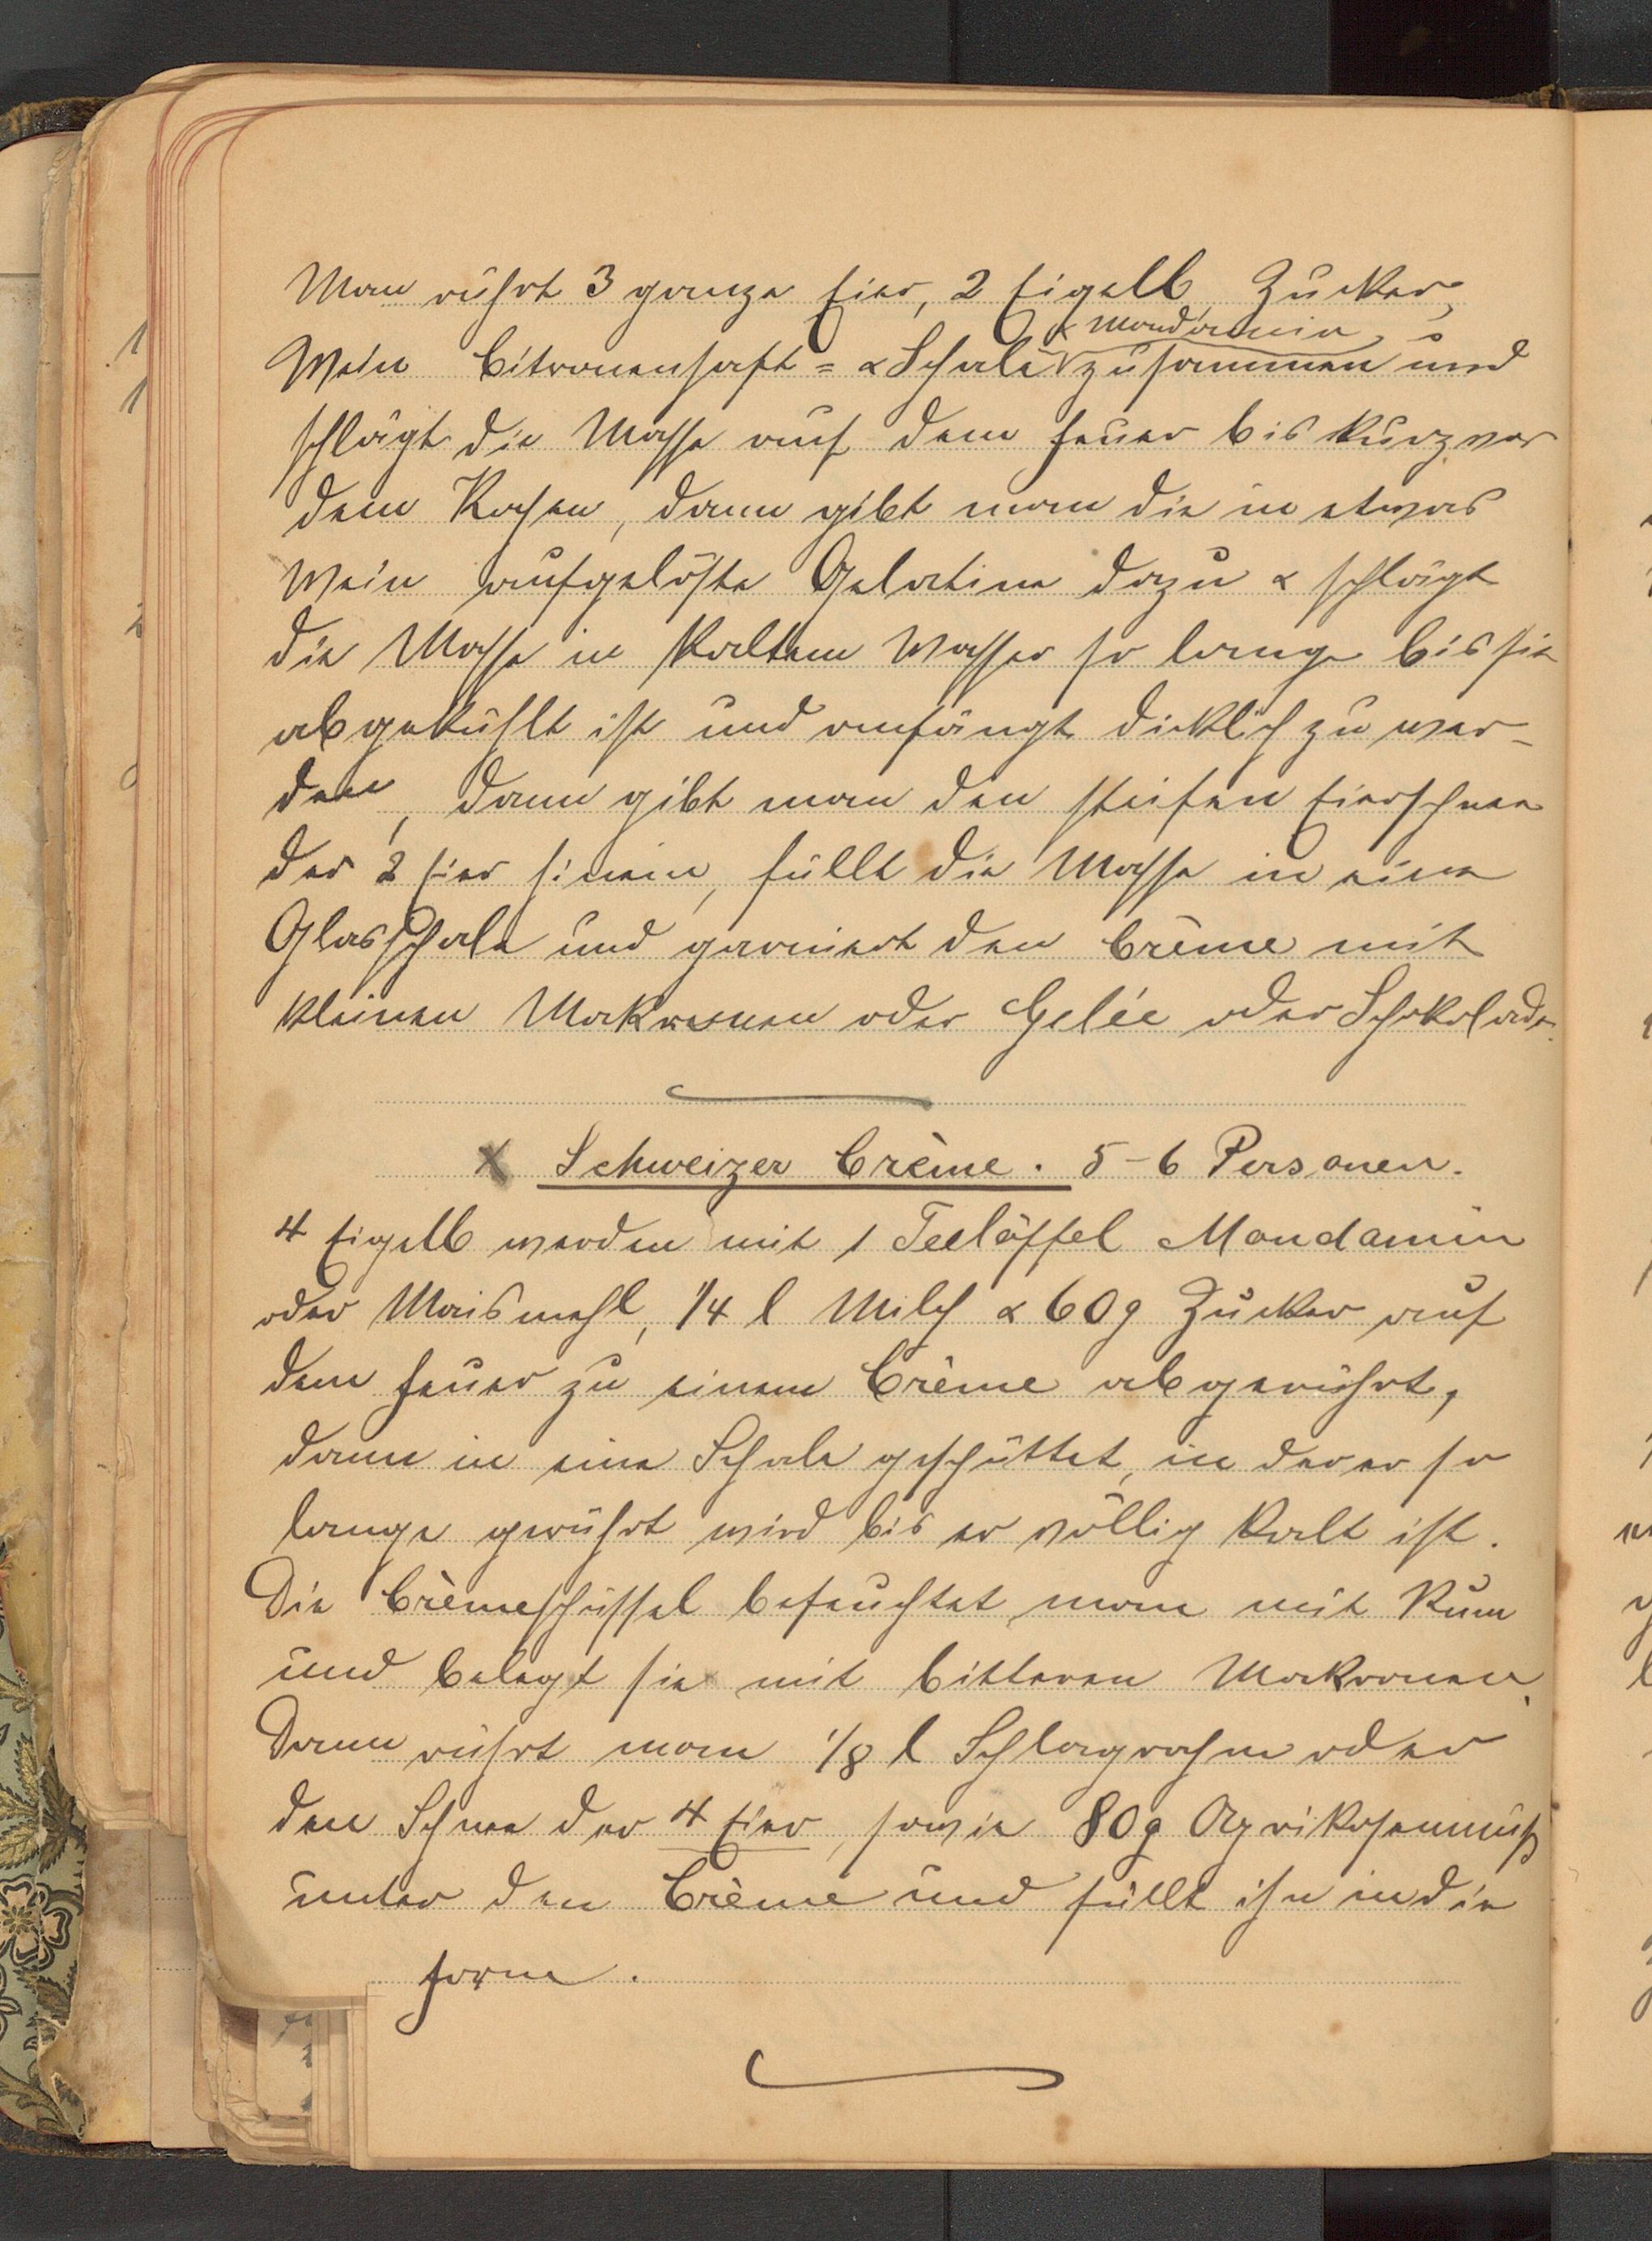 Man rührt 3 ganze Eier, 2 Eigelb, Zucker,
& Mondamin
Wein Citronensaft = & Schale zusammen und
schlägt die Masse auf dem Feuer bis kurz vor
dem Kochen, dann gibt man die in etwas
Wein aufgelöste Gelatine dazu & schlägt
die Masse in kaltem Wasser so lange bis sie
abgekühlt ist und anfängt dicklich zu wer-
den, dann gibt man den steifen Eierschnee
der 2 Eier hinein, füllt die Masse in eine
Glasschale und garniert den Crème mit
kleinen Makronen oder Gelée oder Schokolade.
x Schweizer Crème. 5-6 Personen.
4 Eigelb werden mit 1 Teelöffel Mondamin
oder Maismehl, 1/4 l Milch & 60 g Zucker auf
dem Feuer zu einem Crème abgerührt,
dann in eine Schale geschüttet, in der er so
lange gerührt wird bis er völlig kalt ist.
Die Crèmeschüssel befeuchtet man mit Rum
und belegt sie mit bitteren Makronen.
Dann rührt man 1/8 l Schlagrahm oder
den Schnee der 4 Eier, sowie 80 g Aprikosenmuß
unter den Crème und füllt ihn in die
Form.